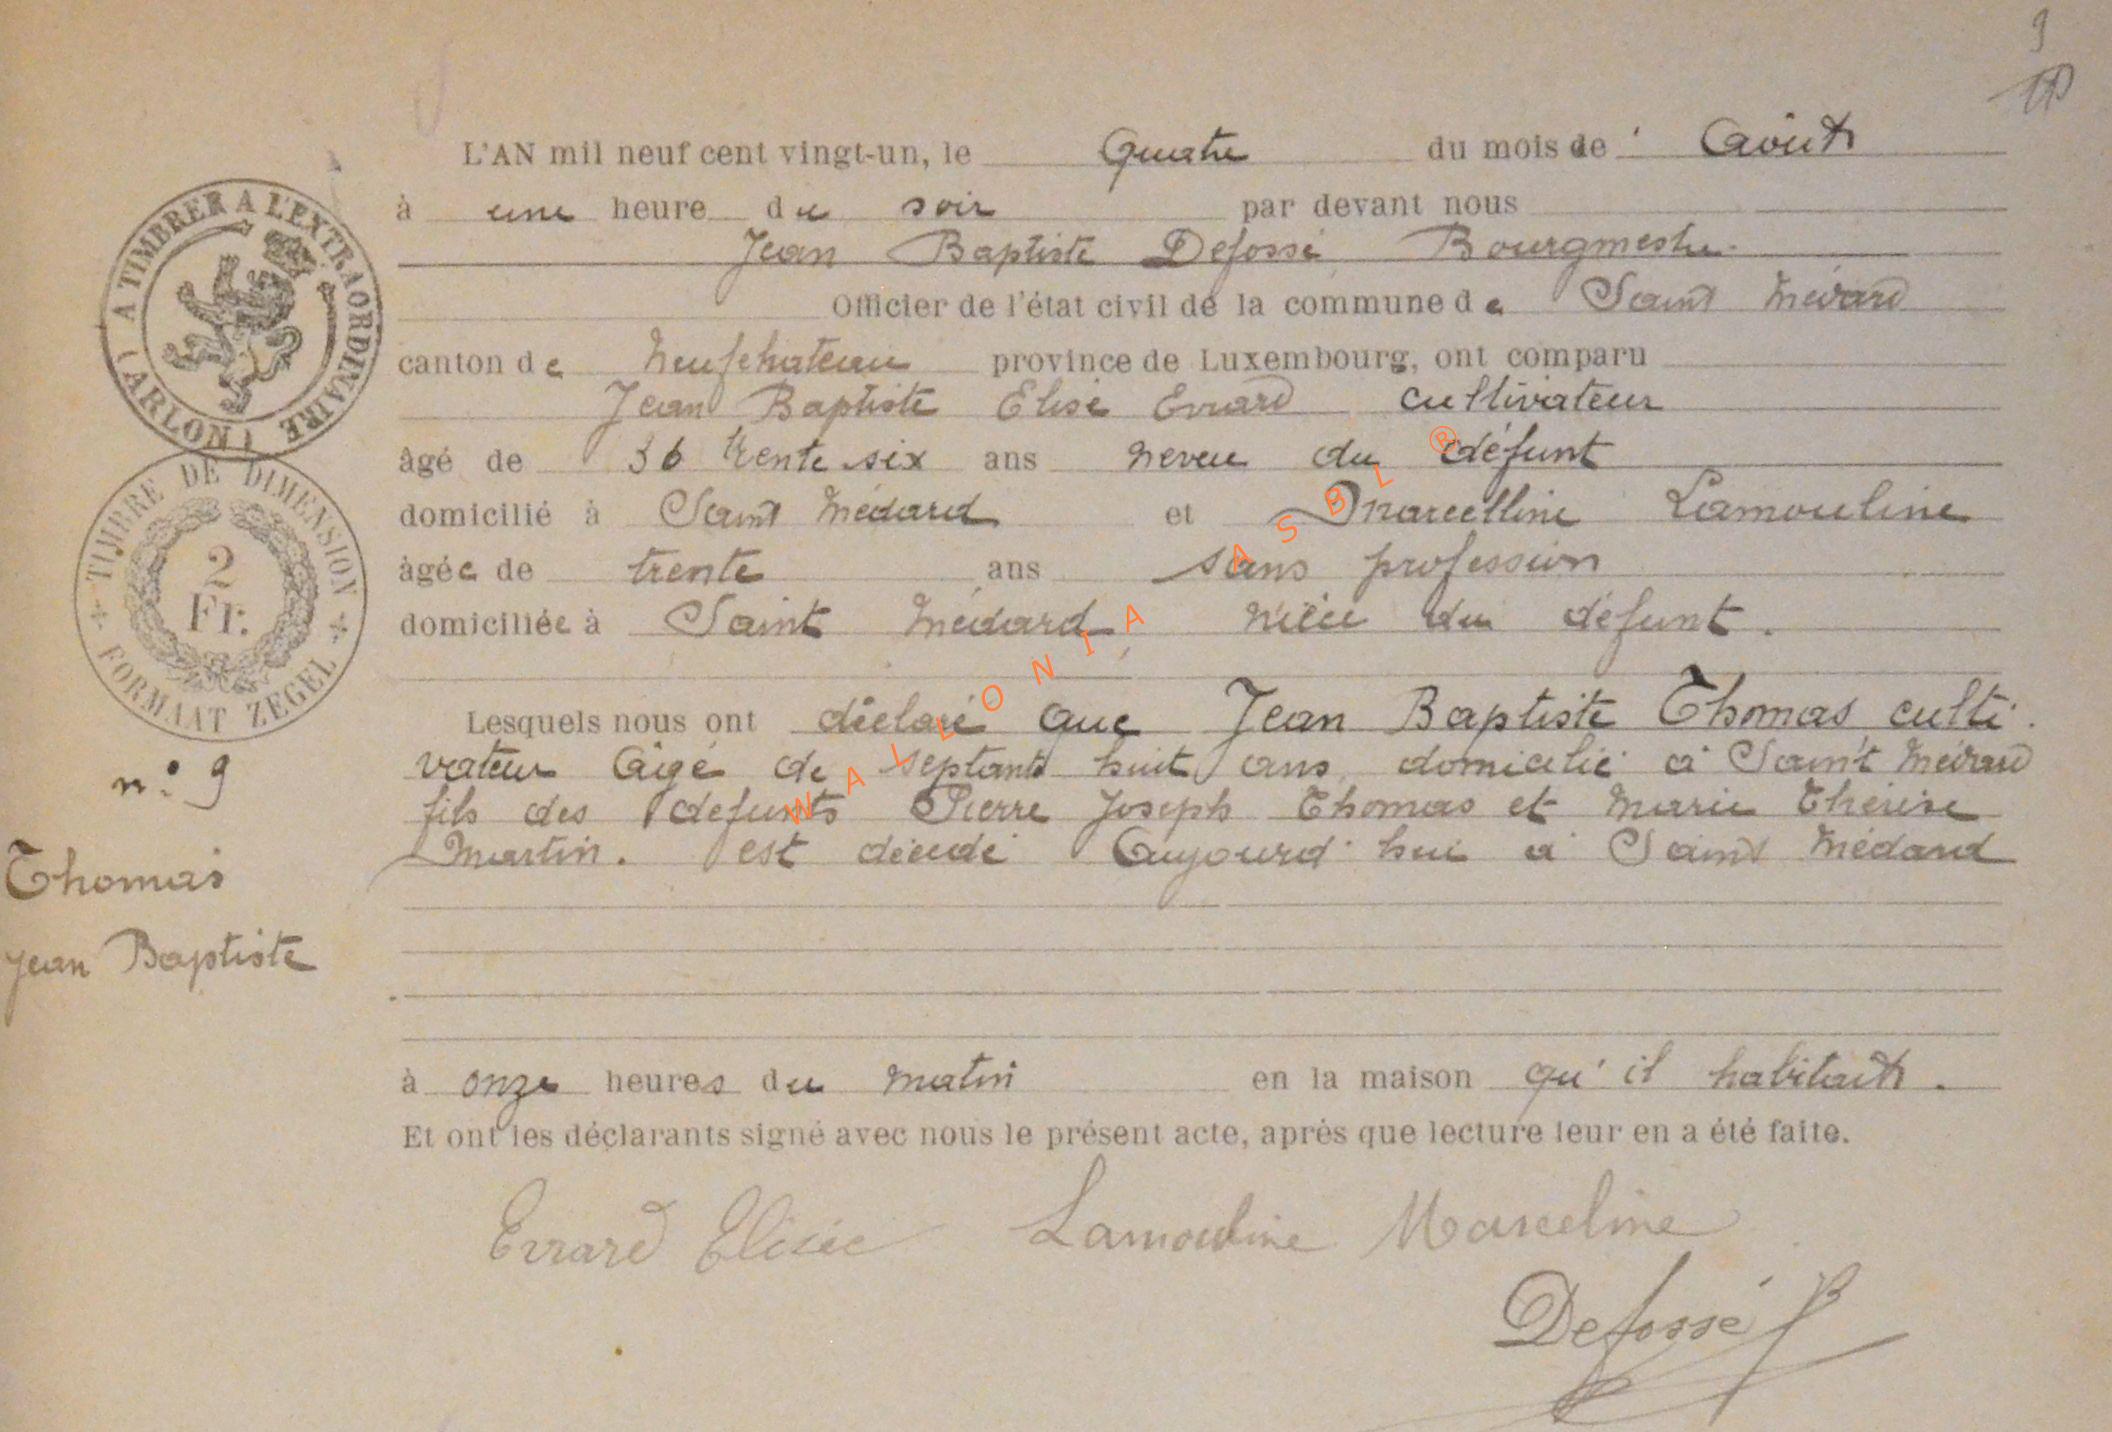 9
L'AN mil neuf cent vingt-un, le Quatre du mois de Août
à une heure du soir par devant nous
Jean Baptiste Defossé Bourgmestre
Officier de l'état civil de la commune de Saint Médard
canton de Neufchateau province de Luxembourg, ont comparu
Jean Baptiste Elisé Evrard cultivateur
âgé de 36 trente six ans neveu du défunt
domicilié à Saint Médard et Marcelline Lamouline
âgée de trente ans sans profession
domiciliée à Saint Médard nièce du défunt.
Lesquels nous ont déclaré que Jean Baptiste Thomas culti
vateur âgé de septante huit ans domicilié à Saint Médard
fils des defunts Pierre Joseph Thomas et Marie Thérèse
Martin. est décédé Aujourd'hui à Saint Médard
à onze heures du matin en la maison qu'il habitait.
Et ont les déclarants signé avec nous le présent acte, après que lecture leur en a été faite.
Evrard Elisée Lamouline Marceline
Defossé JB
A TIMBRER A L'EXTRAORDINAIRE
(ARLON)
TIMBRE DE DIMENSION
2
Fr.
FORMAAT ZEGEL
n° 9
Thomas
Jean Baptiste
WALLONIA ASBL ®